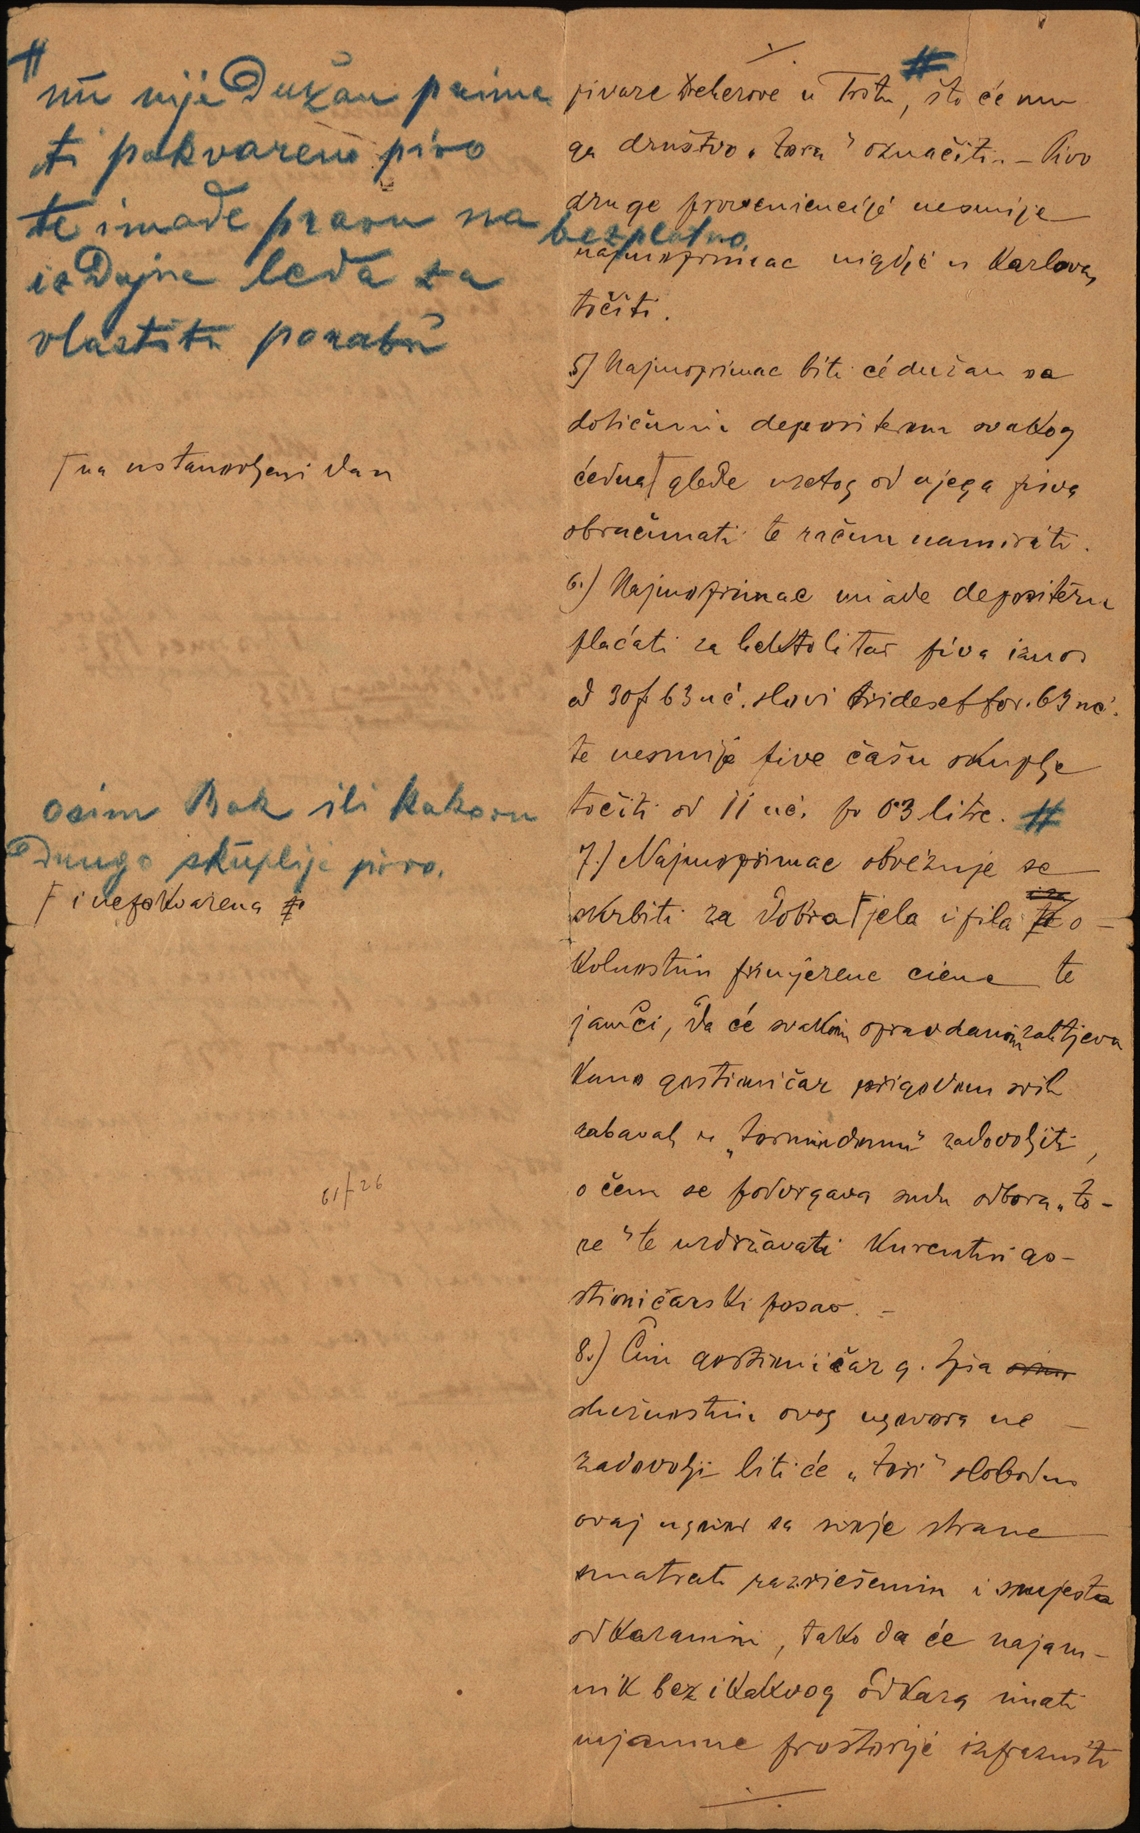 #
nu nije dužan prima
ti pokvareno pivo
te imade pravo na bezplatno
izdajne leda za
vlastitu porabu
⌈na ustanovljeni dan
osim Bok ili kakovu
drugo skuplje pivo.
⌈ i nepokvarena
61/26
pivare Dreherove u Trstu, # što će mu
ga društvo „Zora" označiti. – Pivo
druge proveniencije nesmije
najmoprimac nigdje u Karlovcu
točiti.
5) Najmoprimac biti će dužan sa
dotičnim depositerom svakog
tjedna⌈ glede uzetog od njega piva
obračunati te račun namiriti.
6.) Najmoprimac imade depositeru
plaćati za hektolitar piva iznos
od 30 f 63 nč. slovi trideset for. 63 nč.
te nesmije pive čašu skuplje
točiti od 11 nč. po 0·3 litre. #
7.) Najmoprimac obvezuje se
skrbiti za dobra⌈ jela i pila o-
kolnostim primjerene ciene te
jamči, da će svakom opravdanom zahtjevu
kano gostioničar prigodom svih
zabavah u „Zorinudomu" zadovoljiti,
o čem se podvrgava sudu odbora „Zo-
re" te uzdržavati kurentni go-
stioničarski posao. –
8.) Čim gostioničar g. Spia
dužnostim ovog ugovora ne
zadovolji biti će „Zori" slobodno
ovaj ugovor sa svoje strane
smatrati razriešenim i smjesta
odkazanim, tako da će najam-
nik bez ikakvog odkaza imati
najamne prostorije izprazniti